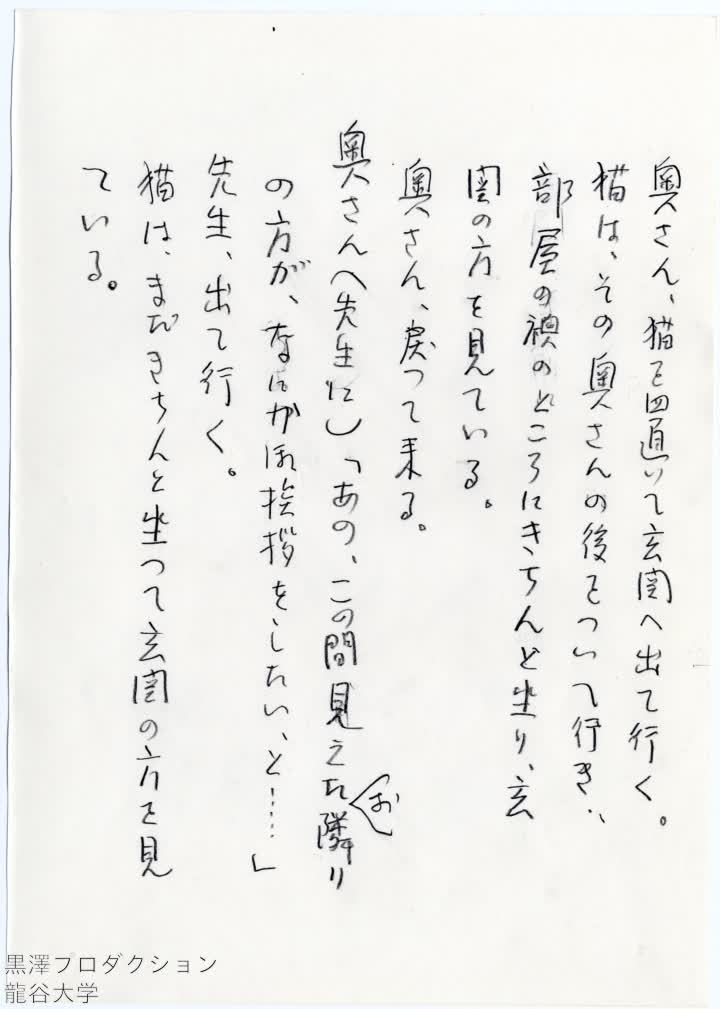 奥さん、猫を置いて玄関へ出て行く。
猫は、その奥さんの後をついて行き、
部屋の襖のところにきちんと坐り、玄
関の方を見ている。
奥さん、戻って来る。
奥さん（先生に）「あの、この間見えたお隣り
の方が、なにかご挨拶をしたい、と……」
先生、出て行く。
猫は、まだきちんと坐って玄関の方を見
ている。
黒澤プロダクション
龍谷大学